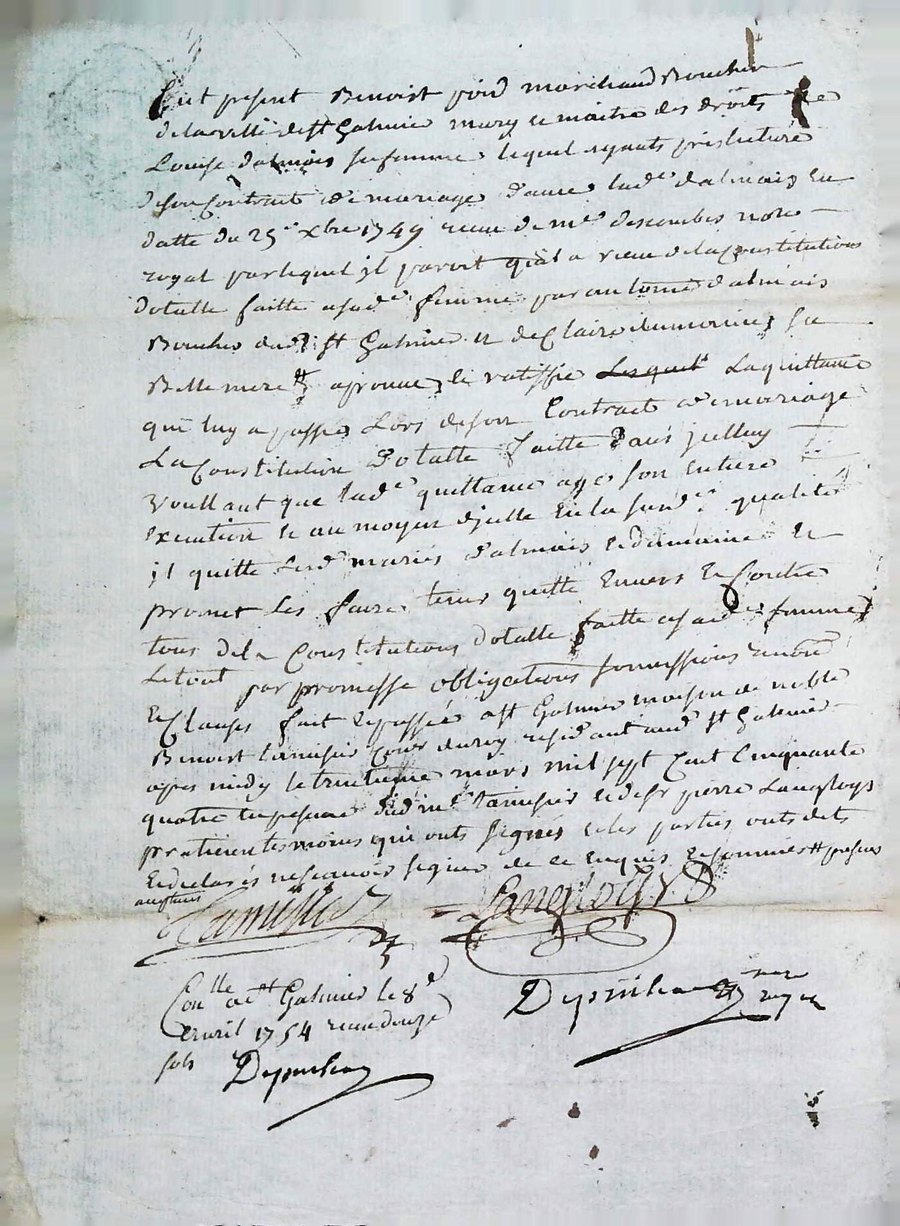 fut present Benoist poid marchand Boucher
de la ville de st Galmier mary et maitre des droits de
Louise dalmais sa femme, lequel ayant pris lecture
de son Contrat de mariage d'avec lade dalmais en
datte du 25e xbre 1749 receu de me descombes notre
royal par lequel jl paroit quil a receu de la Constitution
dotalle faitte a sade femme par antoine dalmais
Boucher dud st Galmier et de Claire dumaine sa
Belle mere aprouve, et ratiffie Lesquel La quittance
qui luy a passé Lors de son Contract de mariage
La Constitution Dotalle faitte dans jcelluy
voullant que lade quittance aye son entiere
execution et au moyen djcelle en la susde qualité
jl quitte lesd mariés dalmais et dumaine et
promet les faire tenir quitte envers et Contre
tous de la Constitution dotalle faitte a sade femme
le tout par promesse obligations soumissions renon
et Clauses fait et passé a st Galmier maison de noble
Benoist tamisier Coner du roy residant aud st Galmier
apres midy le trentieme mars mil sept Cent Cinquante
quatre en presence dud me tamisier et de sr pierre Langloys
praticien temoins qui ont signés et les parties ont dit
et declarés ne scavoir signer de ce enquis et sommés
Tamisier Langloys
Conlle a st Galmier le 8e
avril 1754 receu douze
sols
nore
royal